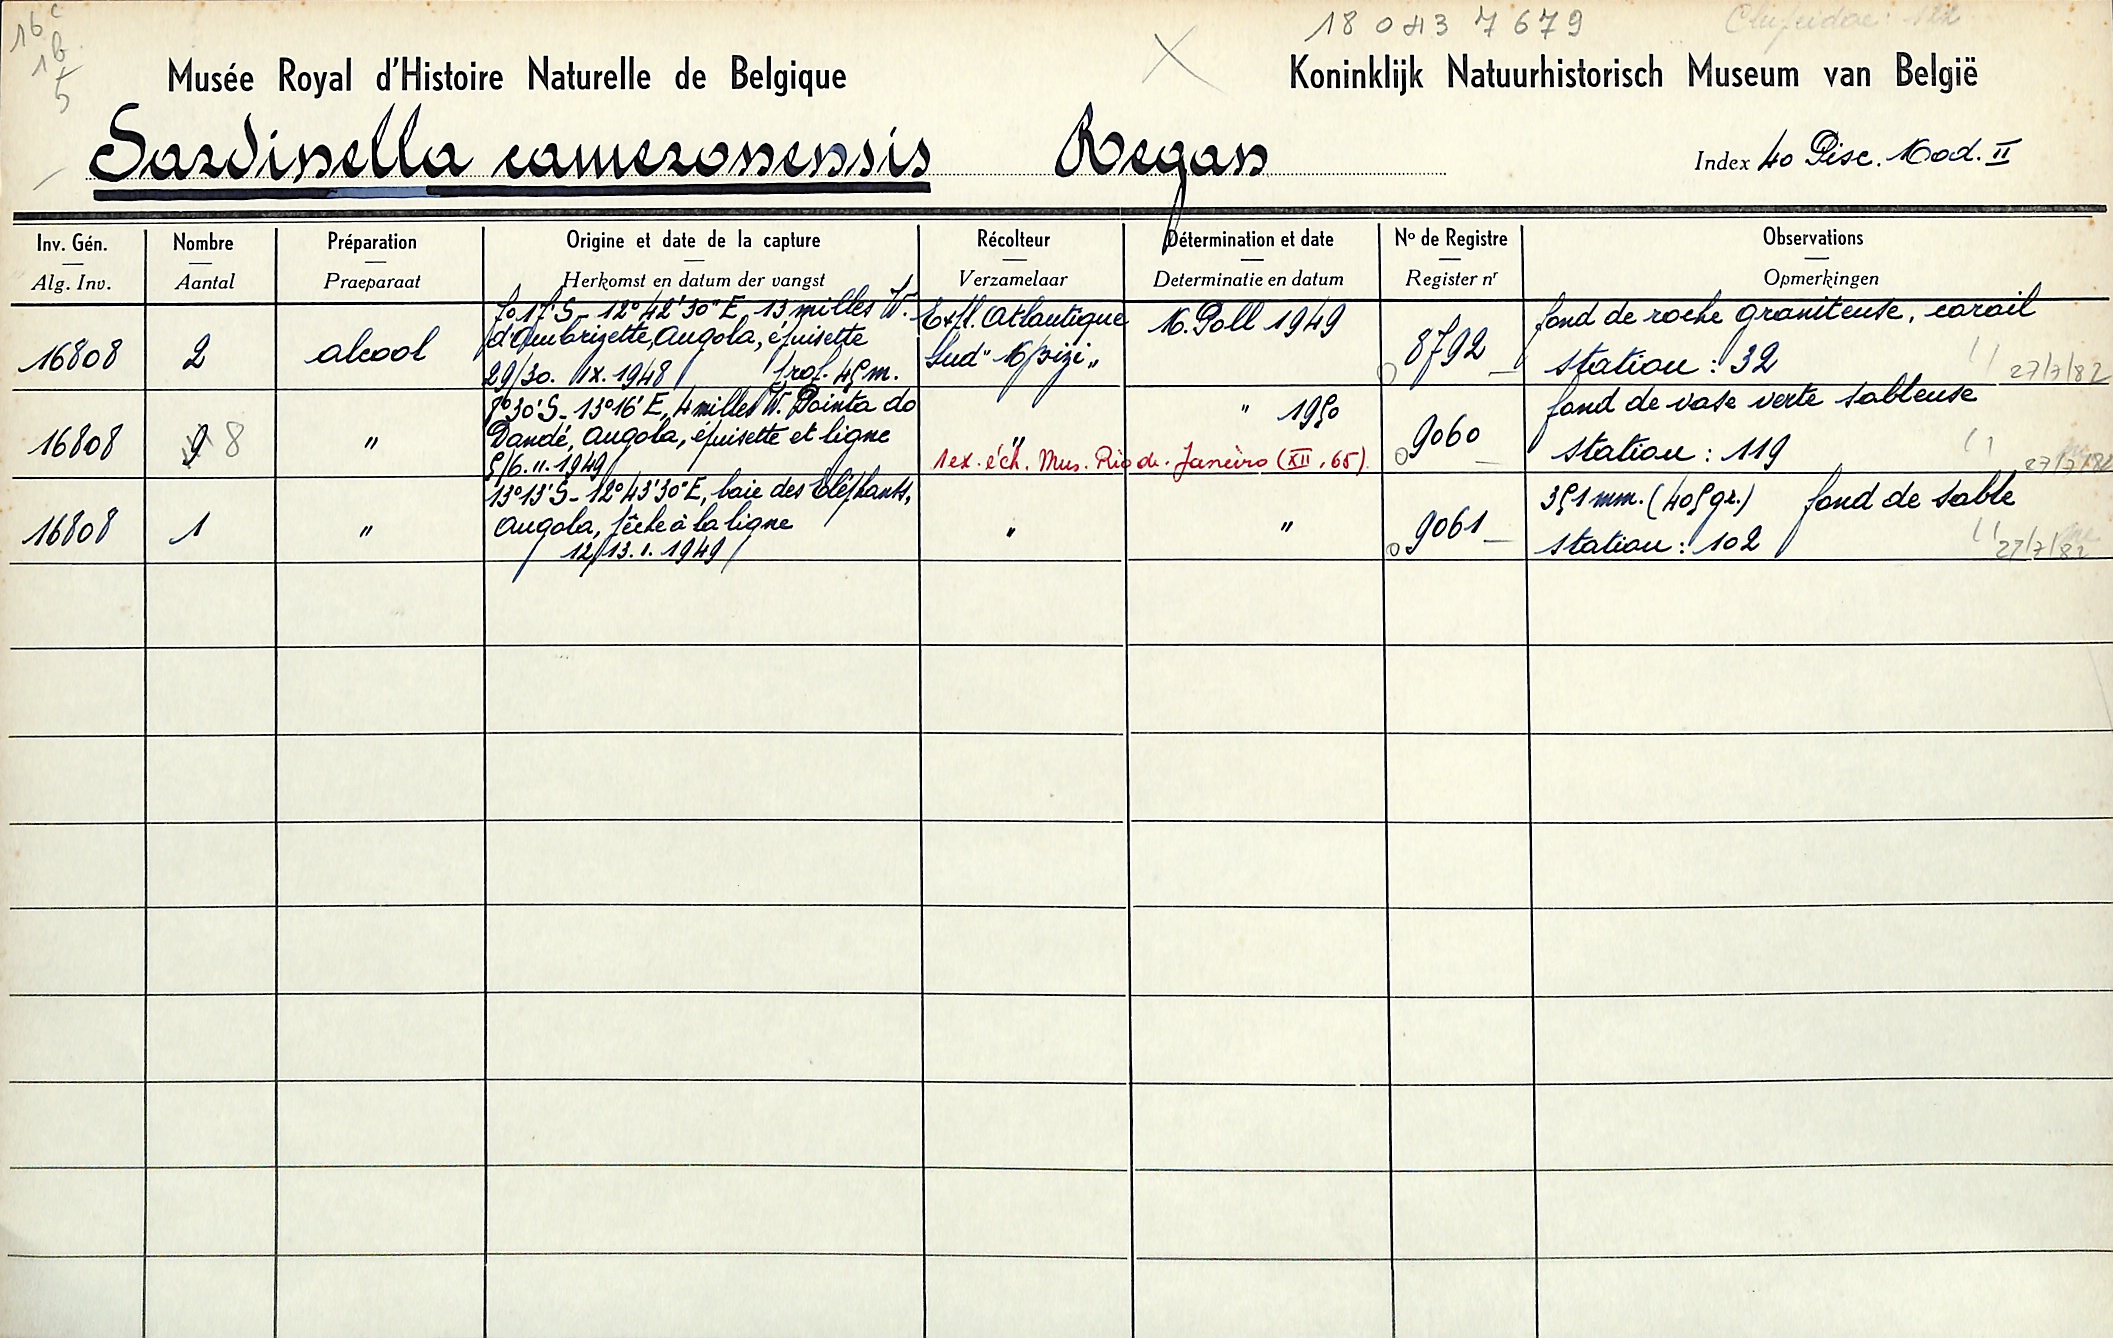 16c
1b
5
18 043 7679
Clupeidae
Musée Royal d'Histoire Naturelle de Belgique
Koninklijk Natuurhistorisch Museum van België
Sardinella cameronensis Regan
Index 40 Pisc. Mod. II
Inv. Gén. Nombre Préparation Origine et date de la capture Récolteur Détermination et date No de Registre Observations
Alg. Inv. Aantal Praeparaat Herkomst en datum der vangst Verzamelaar Determinatie en datum Register nr Opmerkingen
7°17'S - 12°42'30"E, 13 milles W.
d'Ambrizette, Angola, épuisette
29/30. IX. 1948 prof. 45 m.
16808 2 alcool
Expl. Atlantique
Sud" Mpizi"
M. Poll 1949
8792
fond de roche graniteuse, corail
station : 32
27/7/82
8°30'S - 13°16'E, 4 milles W. Pointa do
Dandé, Angola, épuisette et ligne
5/6. II. 1949
16808 9 8 "
"
1 ex. éch. Mus. Rio de Janeiro (XII, 65).
" 1950
9060
fond de vase verte sableuse
station : 119
27/7/82
13°13'S - 12°43'30"E, baie des Eléphants,
Angola, pêche à la ligne
12/13. I. 1949
16808 1 "
"
"
9061
351 mm. (405 gr.) fond de sable
station : 102
27/7/82